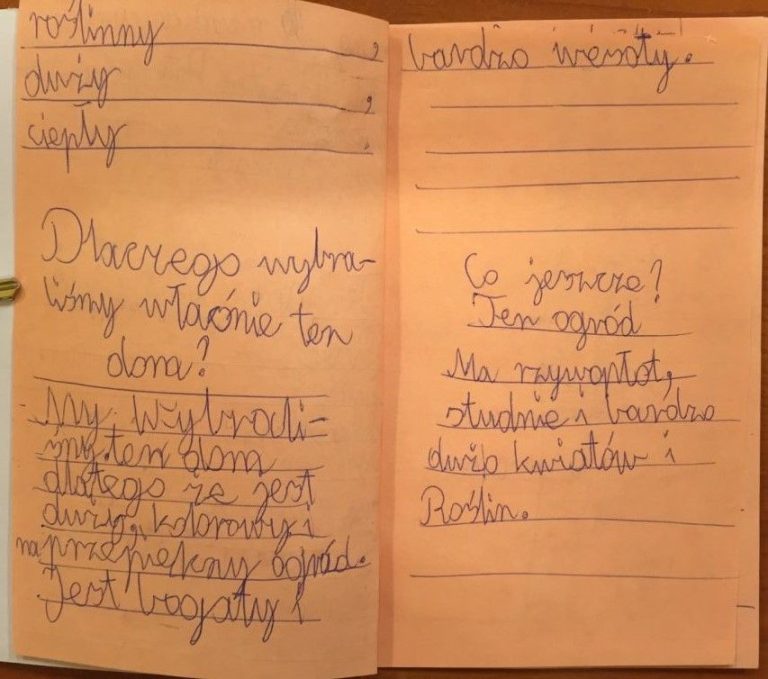 roślinny,
duży,
ciepły.
Dlaczego wybra-
liśmy właśnie ten
dom?
My, Wybrali-
śmy ten dom
dlatego że jest
dużo, kolorowy i
na przepiękny ogród.
Jest bogaty i
bardzo wesoły.
Co jeszcze?
Ten ogród
Ma rzywopłot,
studnie i bardzo
dużo kwiatów i
Roślin.